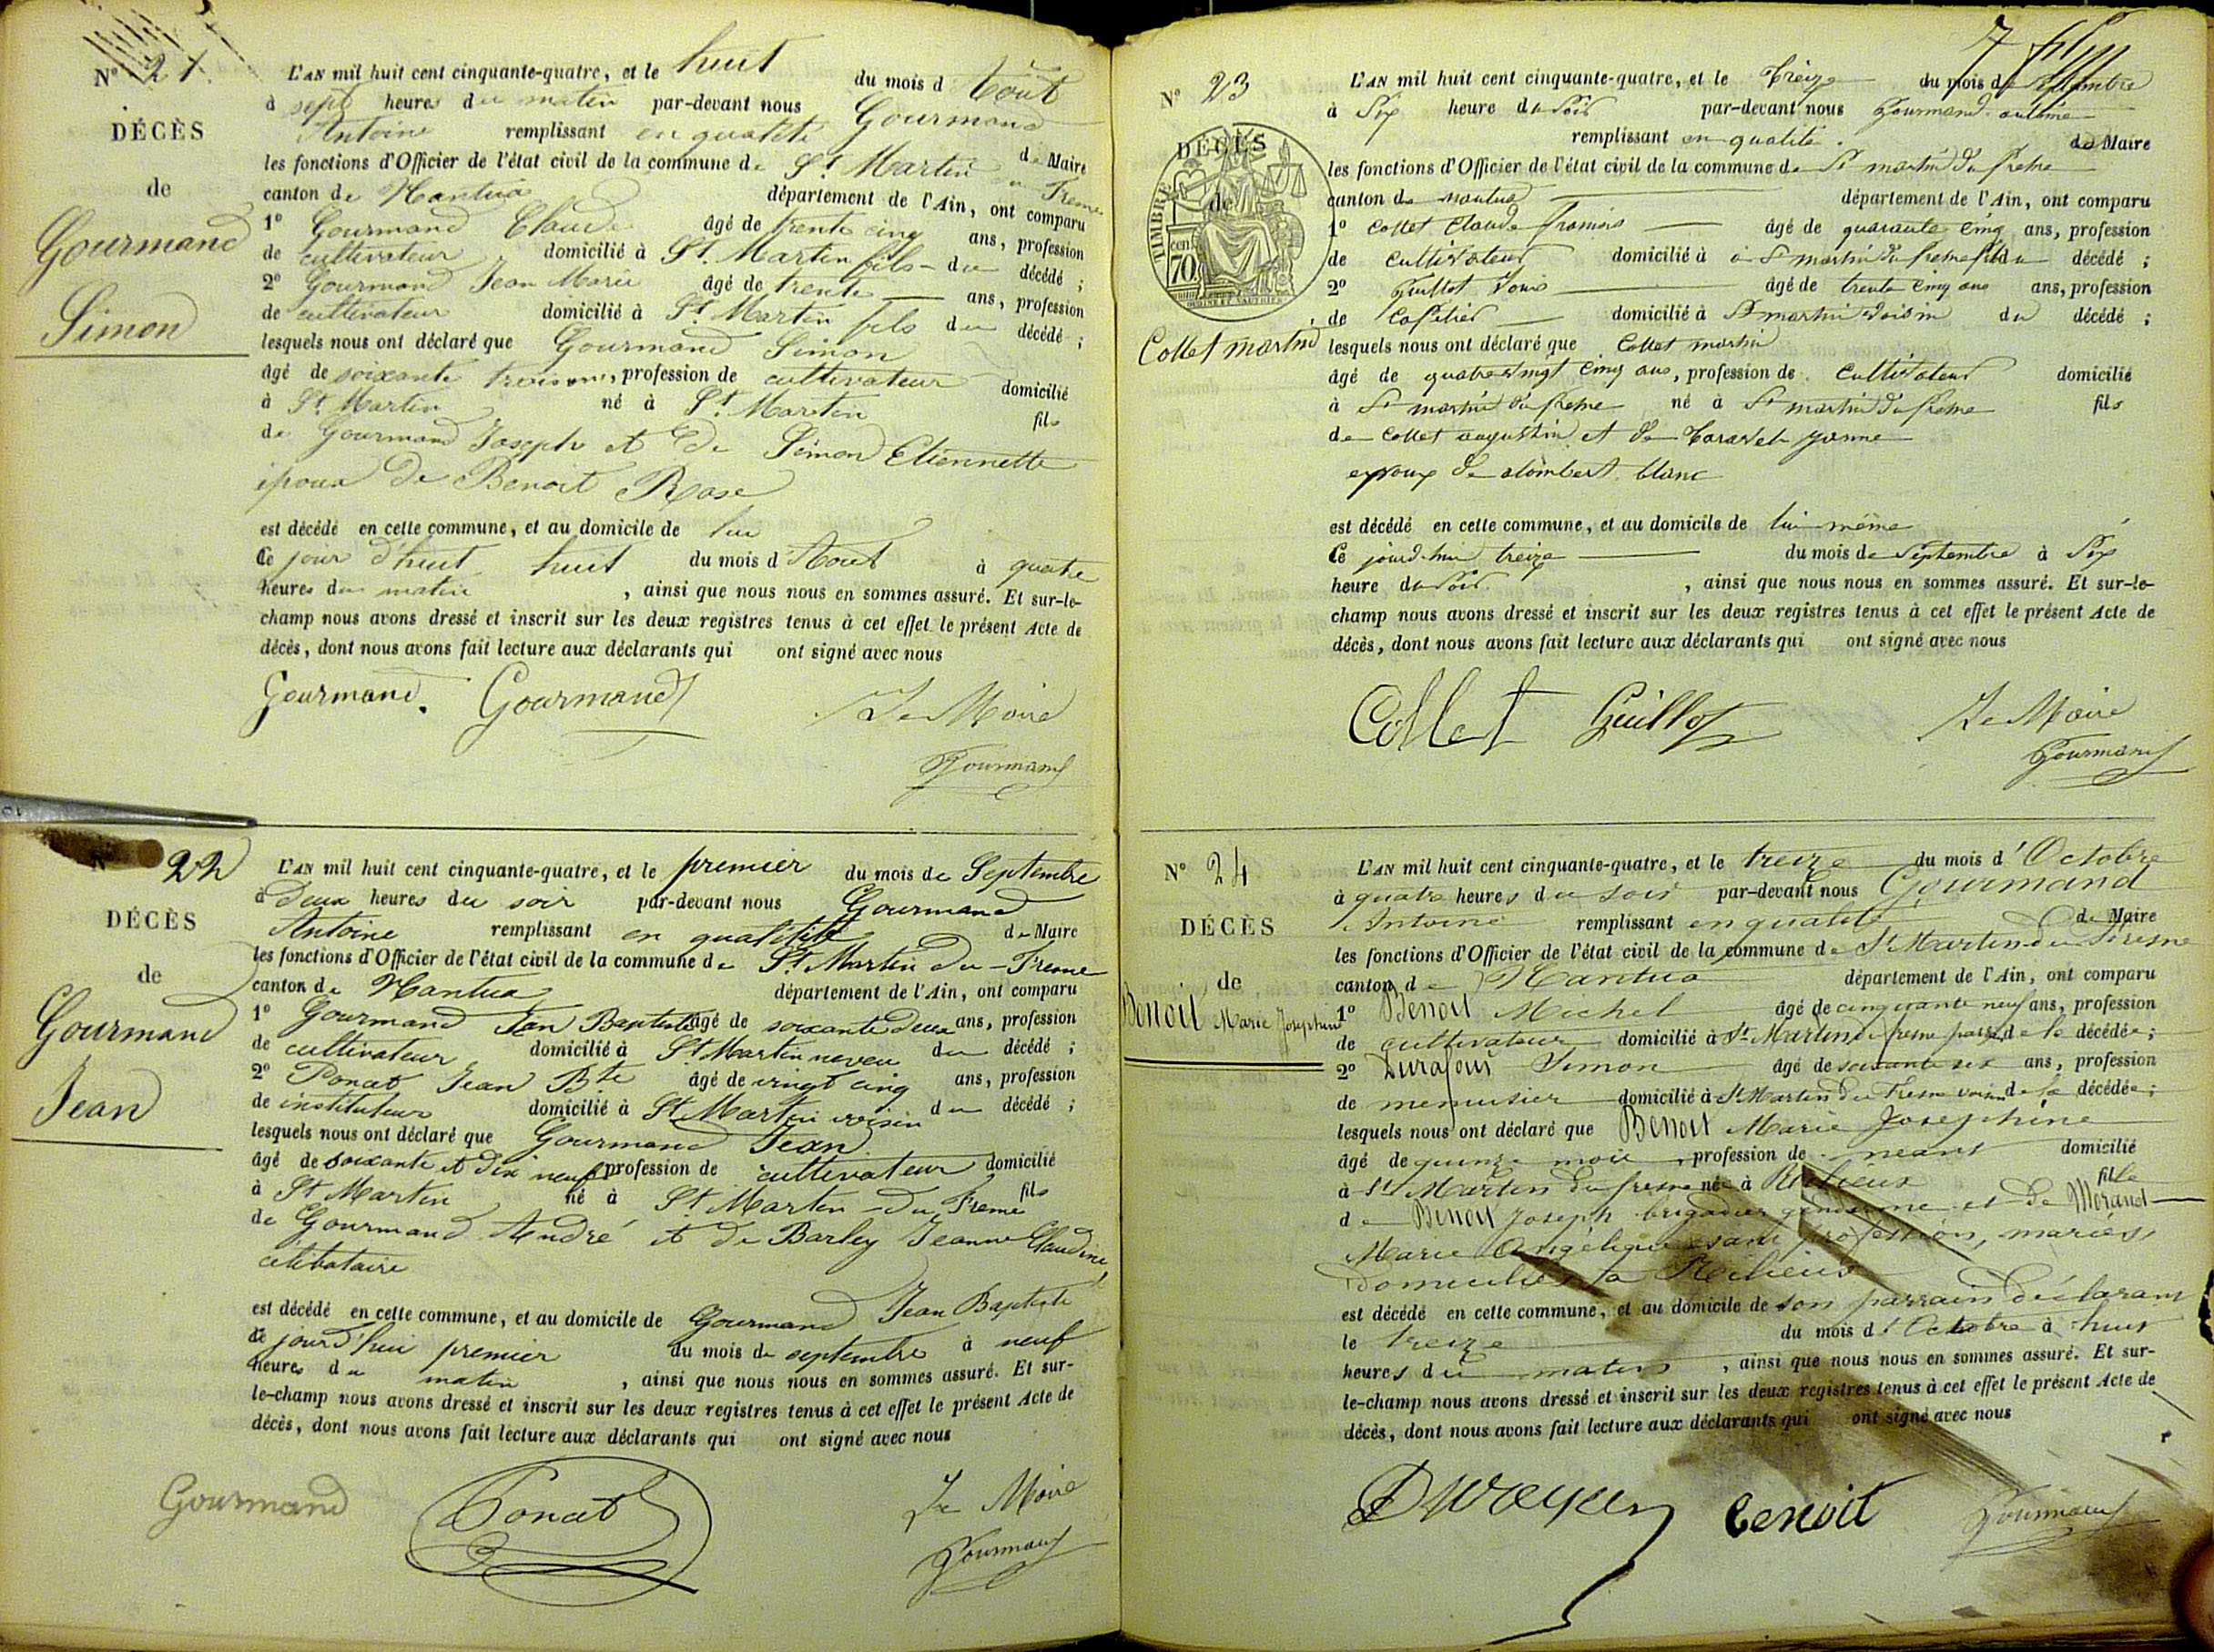 N° 21
DÉCÈS
de
Gourmand
Simon
L'AN mil huit cent cinquante-quatre, et le huit du mois d'Aout
à sept heures du matin par-devant nous Gourmand
Antoine remplissant en qualité de Maire
les fonctions d'Officier de l'état civil de la commune de St. Martin du Frene
canton de Nantua département de l'Ain, ont comparu
1° Gourmand Claude âgé de trente cinq ans, profession
de cultivateur domicilié à St. Martin fils du décédé ;
2° Gourmand Jean Marie âgé de trente ans, profession
de cultivateur domicilié à St. Martin fils du décédé ;
lesquels nous ont déclaré que Gourmand Simon
âgé de soixante trois ans, profession de cultivateur domicilié
à St. Martin né à St. Martin fils
de Gourmand Joseph et de Simon Etiennette
époux de Benoit Rose
est décédé en cette commune, et au domicile de lui
Ce jour d'huit huit du mois d'Aout à quatre
heures du matin , ainsi que nous nous en sommes assuré. Et sur-le-
champ nous avons dressé et inscrit sur les deux registres tenus à cet effet le présent Acte de
décès, dont nous avons fait lecture aux déclarants qui ont signé avec nous
Gourmand. Gourmand Le Maire
Gourmand
N° 22
DÉCÈS
de
Gourmand
Jean
L'AN mil huit cent cinquante-quatre, et le premier du mois de Septembre
à Deux heures du soir par-devant nous Gourmand
Antoine remplissant en qualité de Maire
les fonctions d'Officier de l'état civil de la commune de St. Martin du-Frene
canton de Nantua département de l'Ain, ont comparu
1° Gourmand Jean Baptiste âgé de soixante deux ans, profession
de cultivateur domicilié à St Martin neveu du décédé ;
2° Ponat Jean Bte âgé de vingt cinq ans, profession
de instituteur domicilié à St Martin voisin du décédé ;
lesquels nous ont déclaré que Gourmand Jean
âgé de soixante et dix neuf profession de cultivateur domicilié
à St Martin né à St. Martin-du-Frene fils
de Gourmand André et de Barley Jeanne Claudine,
célibataire
est décédé en cette commune, et au domicile de Gourmand Jean Baptiste
Ce jourd'hui premier du mois de septembre à neuf
heures du matin , ainsi que nous nous en sommes assuré. Et sur-
le-champ nous avons dressé et inscrit sur les deux registres tenus à cet effet le présent Acte de
décès, dont nous avons fait lecture aux déclarants qui ont signé avec nous
Gourmand Ponat Le Maire
Gourmand
7
N° 23
DÉCÈS
de
TIMBRE
cen
70
Collet martin
L'AN mil huit cent cinquante-quatre, et le treize du mois de septembre
à Six heure du Soir par-devant nous Gourmand antoine
remplissant en qualité de Maire
les fonctions d'Officier de l'état civil de la commune de St martin du frene
canton de nantua département de l'Ain, ont comparu
1° Collet Claude françois âgé de quarante cinq ans, profession
de cultivateur domicilié à à St martin du frene fils du décédé ;
2° Guillot Louis âgé de trente cinq ans ans, profession
de domicilié à St martin voisin du décédé ;
lesquels nous ont déclaré que Collet martin
âgé de quatre vingt cinq ans, profession de cultivateur domicilié
à St martin du frene né à St martin du frene fils
de Collet augustin et de
epoux de alombert blanc
est décédé en cette commune, et au domicile de lui-même
Ce jourd-hui treize du mois de Septembre à Six
heure du Soir , ainsi que nous nous en sommes assuré. Et sur-le-
champ nous avons dressé et inscrit sur les deux registres tenus à cet effet le présent Acte de
décès, dont nous avons fait lecture aux déclarants qui ont signé avec nous
Collet Guillot Le Maire
Gourmand
N° 24
DÉCÈS
de
Benoit Marie Josephine
L'AN mil huit cent cinquante-quatre, et le treize du mois d'Octobre
à quatre heures du soir par-devant nous Gourmand
Antoine remplissant en qualité de Maire
les fonctions d'Officier de l'état civil de la commune de St Martin du Fresne
canton de Nantua département de l'Ain, ont comparu
1° Benoit Michel âgé de cinquante neuf ans, profession
de cultivateur domicilié à St Martin du fresne parrain de la décédée ;
2° Durafour Simon âgé de soixante six ans, profession
de menuisier domicilié à St Martin du Fresne voisin de la décédée ;
lesquels nous ont déclaré que Benoit Marie Josephine
âgé de quinze mois , profession de neant domicilié
à St Martin du fresne née à Rilieux fille
de Benoit Joseph brigadier gendarme et de Morand
Marie Angélique sans profession, mariés,
Domiciliés à Rilieux
est décédé en cette commune, et au domicile de son parrain déclarant
le treize du mois d'Octobre à huit
heures du matin , ainsi que nous nous en sommes assuré. Et sur-
le-champ nous avons dressé et inscrit sur les deux registres tenus à cet effet le présent Acte de
décès, dont nous avons fait lecture aux déclarants qui ont signé avec nous
Benoit Gourmand